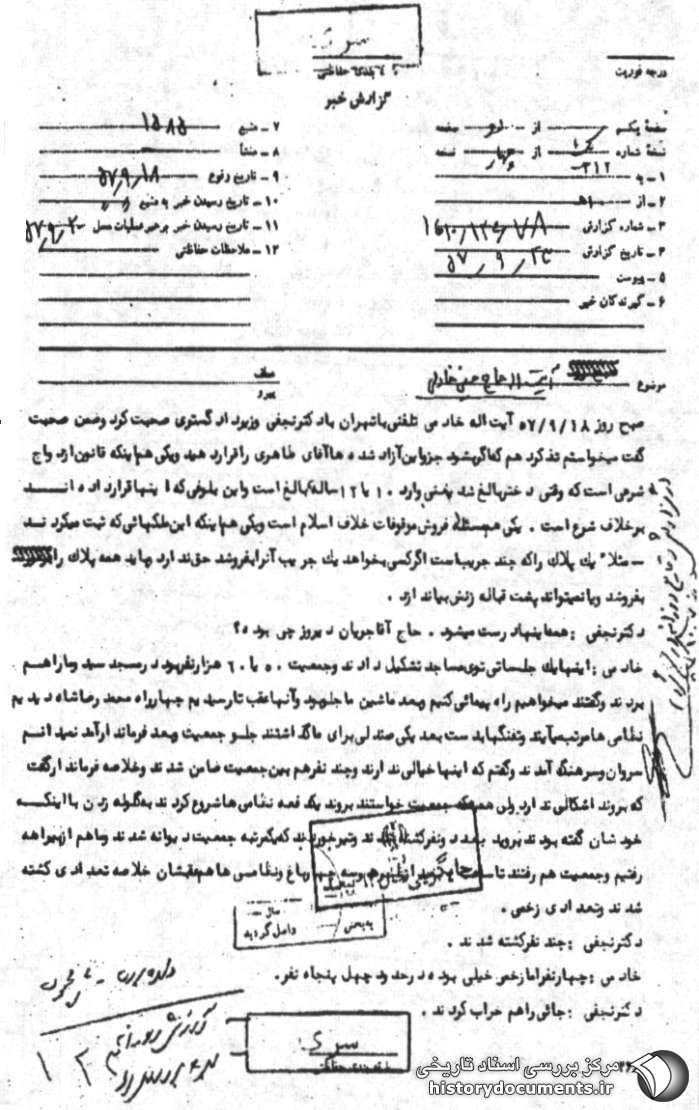 سری
طبقه‌بندی حفاظتی
درجه فوریت
گزارش خبر
صفحه یکم از دو صفحه
نسخه شماره از چهار نسخه
۱ - به ۳۱۲
۲ - از
۳ - شماره گزارش
۴ - تاریخ گزارش ۵۷٫۹٫۲۳
۵ - پیوست
۶ - گیرندگان خبر
۷ - منبع ۱۵۸۵
۸ - منشأ
۹ - تاریخ وقوع ۵۷٫۹٫۱۸
۱۰ - تاریخ رسیدن خبر به منبع
۱۱ - تاریخ رسیدن خبر به رهبر عملیات محل ۵۷٫۹٫۲۰
۱۲ - ملاحظات حفاظتی
موضوع آیت اله حاج حسین خادمی
عطف
پیرو
صبح روز ۵۷/۹/۱۸ آیت اله خادمی تلفنی باتهران بادکترنجفی وزیردادگستری صحبت کرد وضمن صحبت
گفت میخواستم تذکردهم که اگرمیشود جزواین آزاد شده ها آقای طاهری راقراردهید ویکی هم اینکه قانون ازدواج
شرعی است که وقتی دختربالغ شد یعنی وارد ۱۰ یا ۱۲ ساله بالغ است واین بلوغی که اینها قرارداده انــد
برخلاف شرع است . یکی هم مسئله فروش موقوفات خلاف اسلام است ویکی هم اینکه این ملکهائی که ثبت میکردنــد
- مثلا یک پلاک راکه چند جریب است اگرکسی بخواهد یک جریب آنرابفروشد حق ندارد وباید همه پلاک را
بفروشد ویانمیتواند پشت قباله زنش بیاندازد .
دکترنجفی : همه اینها درست میشود . حاج آقاجریان دیروز چی بوده ؟
خادمی : اینهایک جلساتی توی مساجد تشکیل دادند وجمعیت ۵۰ یا ۶۰ هزارنفربود درمسجد سید وماراهـم
بردند وگفتند میخواهیم راه پیمائی کنیم وبعد ماشین ماجلوبود وآنهاعقب تارسیدیم چهارراه محمد رضاشاه دیدیم
نظامی هامرتب میآیند وتفنگهابدست بعد یکی صندلی برای ماگذاشتند جلو جمعیت وبعد فرماندارآمد نمیدانــم
سروان وسرهنگ آمدند وگفتم که اینها خیالی ندارند وچند نفرهم بین جمعیت ضامن شدند وخلاصه فرماندارگفت
که بروند اشکالی ندارد ولی همینکه جمعیت خواستند بروند یک دفعه نظامی هاشروع کردند به گلوله زدن بااینکــه
خودشان گفته بودند بروید بعد دونفرکشته شدند وتیرخوردند که یکمرتبه جمعیت دیوانه شدند وماهم ازبیراهه
رفتیم وجمعیت هم رفتند تا چهارباغ ونظامی هاهم عقبشان خلاصه تعدادی کشته
شدند وتعدادی زخمی .
دکترنجفی : چند نفرکشته شدند .
خادمی : چهارنفراما زخمی خیلی بوده درحدود چهل پنجاه نفر.
دکترنجفی : جائی راهم خراب کردند .
سری
طبقه‌بندی حفاظتی
مرکز بررسی اسناد تاریخی
historydocuments.ir